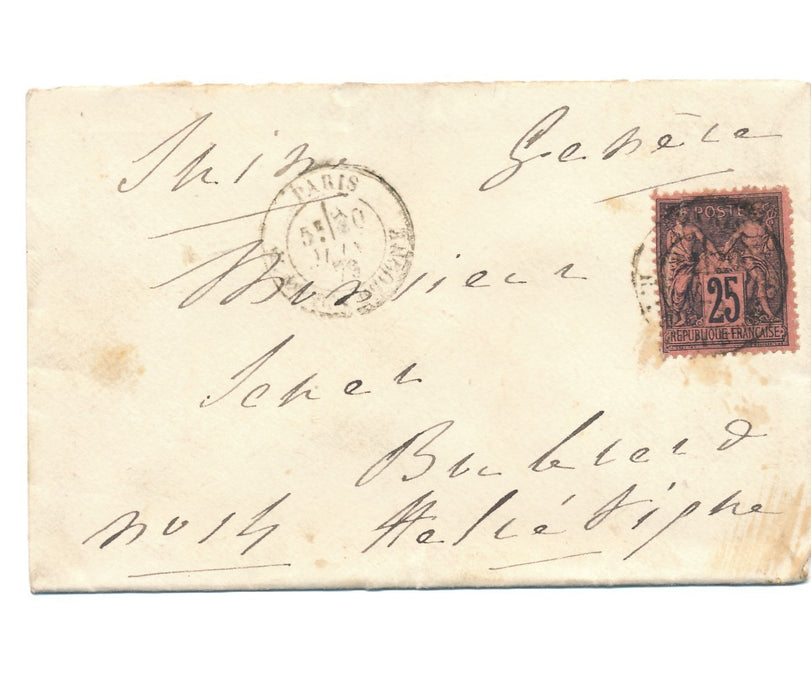 Suisse Genève
PARIS
5E 20
78
POSTE
25
REPUBLIQUE FRANÇAISE
Monsieur
Boulevard
no 14 Helvétique